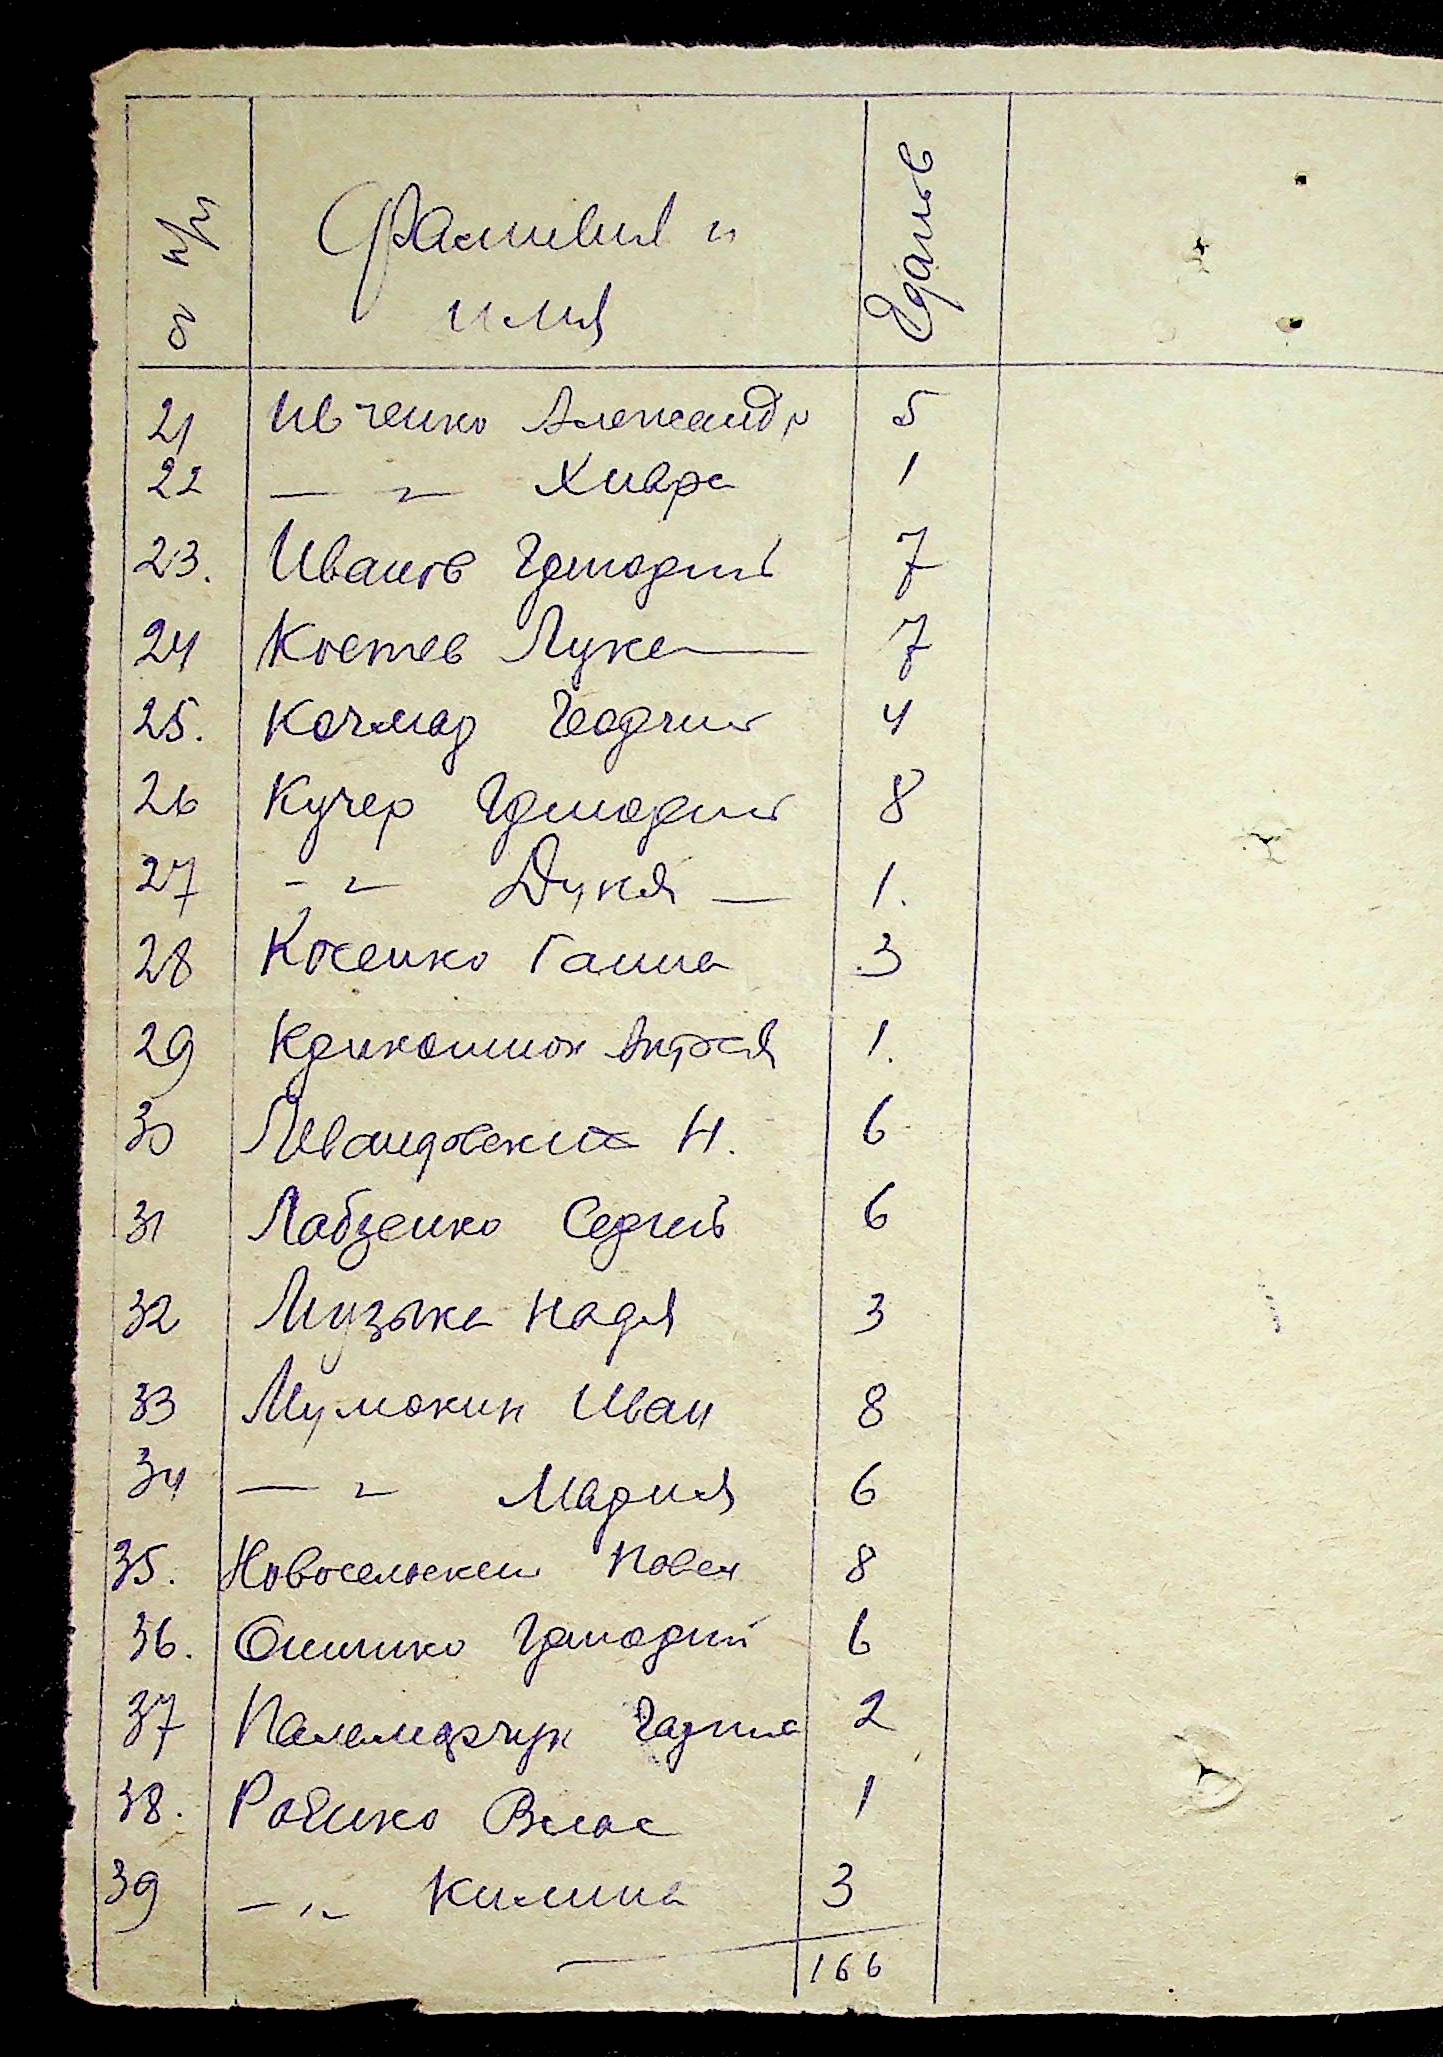 № п/п Фамилия и Едоков
имя
21 Ивченко Александр 5
22 — " — Хивря 1
23. Иванов Григорий 7
24 Костев Лука — 7
25. Качмар Георгий 4
26 Кучер Григорий 8
27 - " - Дукия — 1.
28 Косенко Ганна 3
29 Крикотнюк 1.
30 Левандовский Н. 6
31 Лабзенко Сергей 6
32 Музыка Надя 3
33 Мумокин Иван 8
34 — " — Мария 6
35. Новосельский Павел 8
36. Онишко Григорий 6
37 Паламарчук Гарпина 2
38. Влас 1
39 - " - Килина 3
166